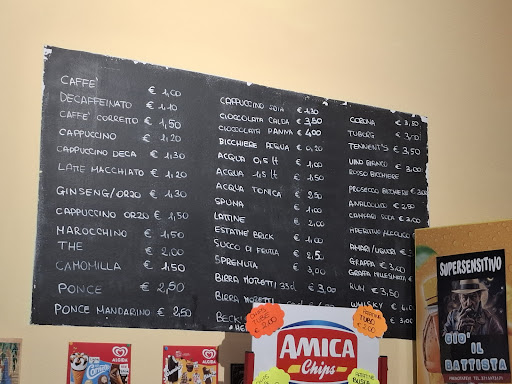 CAFFE' € 1,00
DECAFFEINATO € 1,10
CAFFE' CORRETTO € 1,50
CAPPUCCINO € 1,20
CAPPUCCINO DECA € 1,30
LATTE MACCHIATO € 1,20
GINSENG/ORZO € 1,30
CAPPUCCINO ORZO € 1,50
MAROCCHINO € 1,50
THE € 2,00
CAMOMILLA € 1,50
PONCE € 2,50
PONCE MANDARINO € 2,50
CAPPUCCINO SOIA €
CIOCCOLATA CALDA € 3,50
CIOCCOLATA PANNA € 4,00
BICCHIERE ACQUA € 0,20
ACQUA 0,5 lt € 1,00
ACQUA 1,5 lt € 1,50
ACQUA TONICA € 2,50
SPUMA € 1,00
LATTINE € 2,00
ESTATHE' BRICK € 1,00
SUCCO DI FRUTTA € 2,50
SPREMUTA € 3,00
BIRRA MORETTI 33cl € 3,00
BIRRA MORETTI
BECK'S
CORONA €
TUBORG € 3,00
TENNENT'S € 3,50
VINO BIANCO € 3,00
ROSSO BICCHIERE
PROSECCO BICCHIERE €
ANALCOLICO €
CAMPARI SODA €
APERITIVO ALCOLICO
AMARI/LIQUORI €
GRAPPA € 3,00
GRAPPA
RUM € 3,50
WHISKY €
CHIPS TUBO € 2,00
TUBO € 2,00
AMICA
Chips
SUPERSENSITIVO
GIO' IL
BATTISTA
ALGIDA
ALGIDA